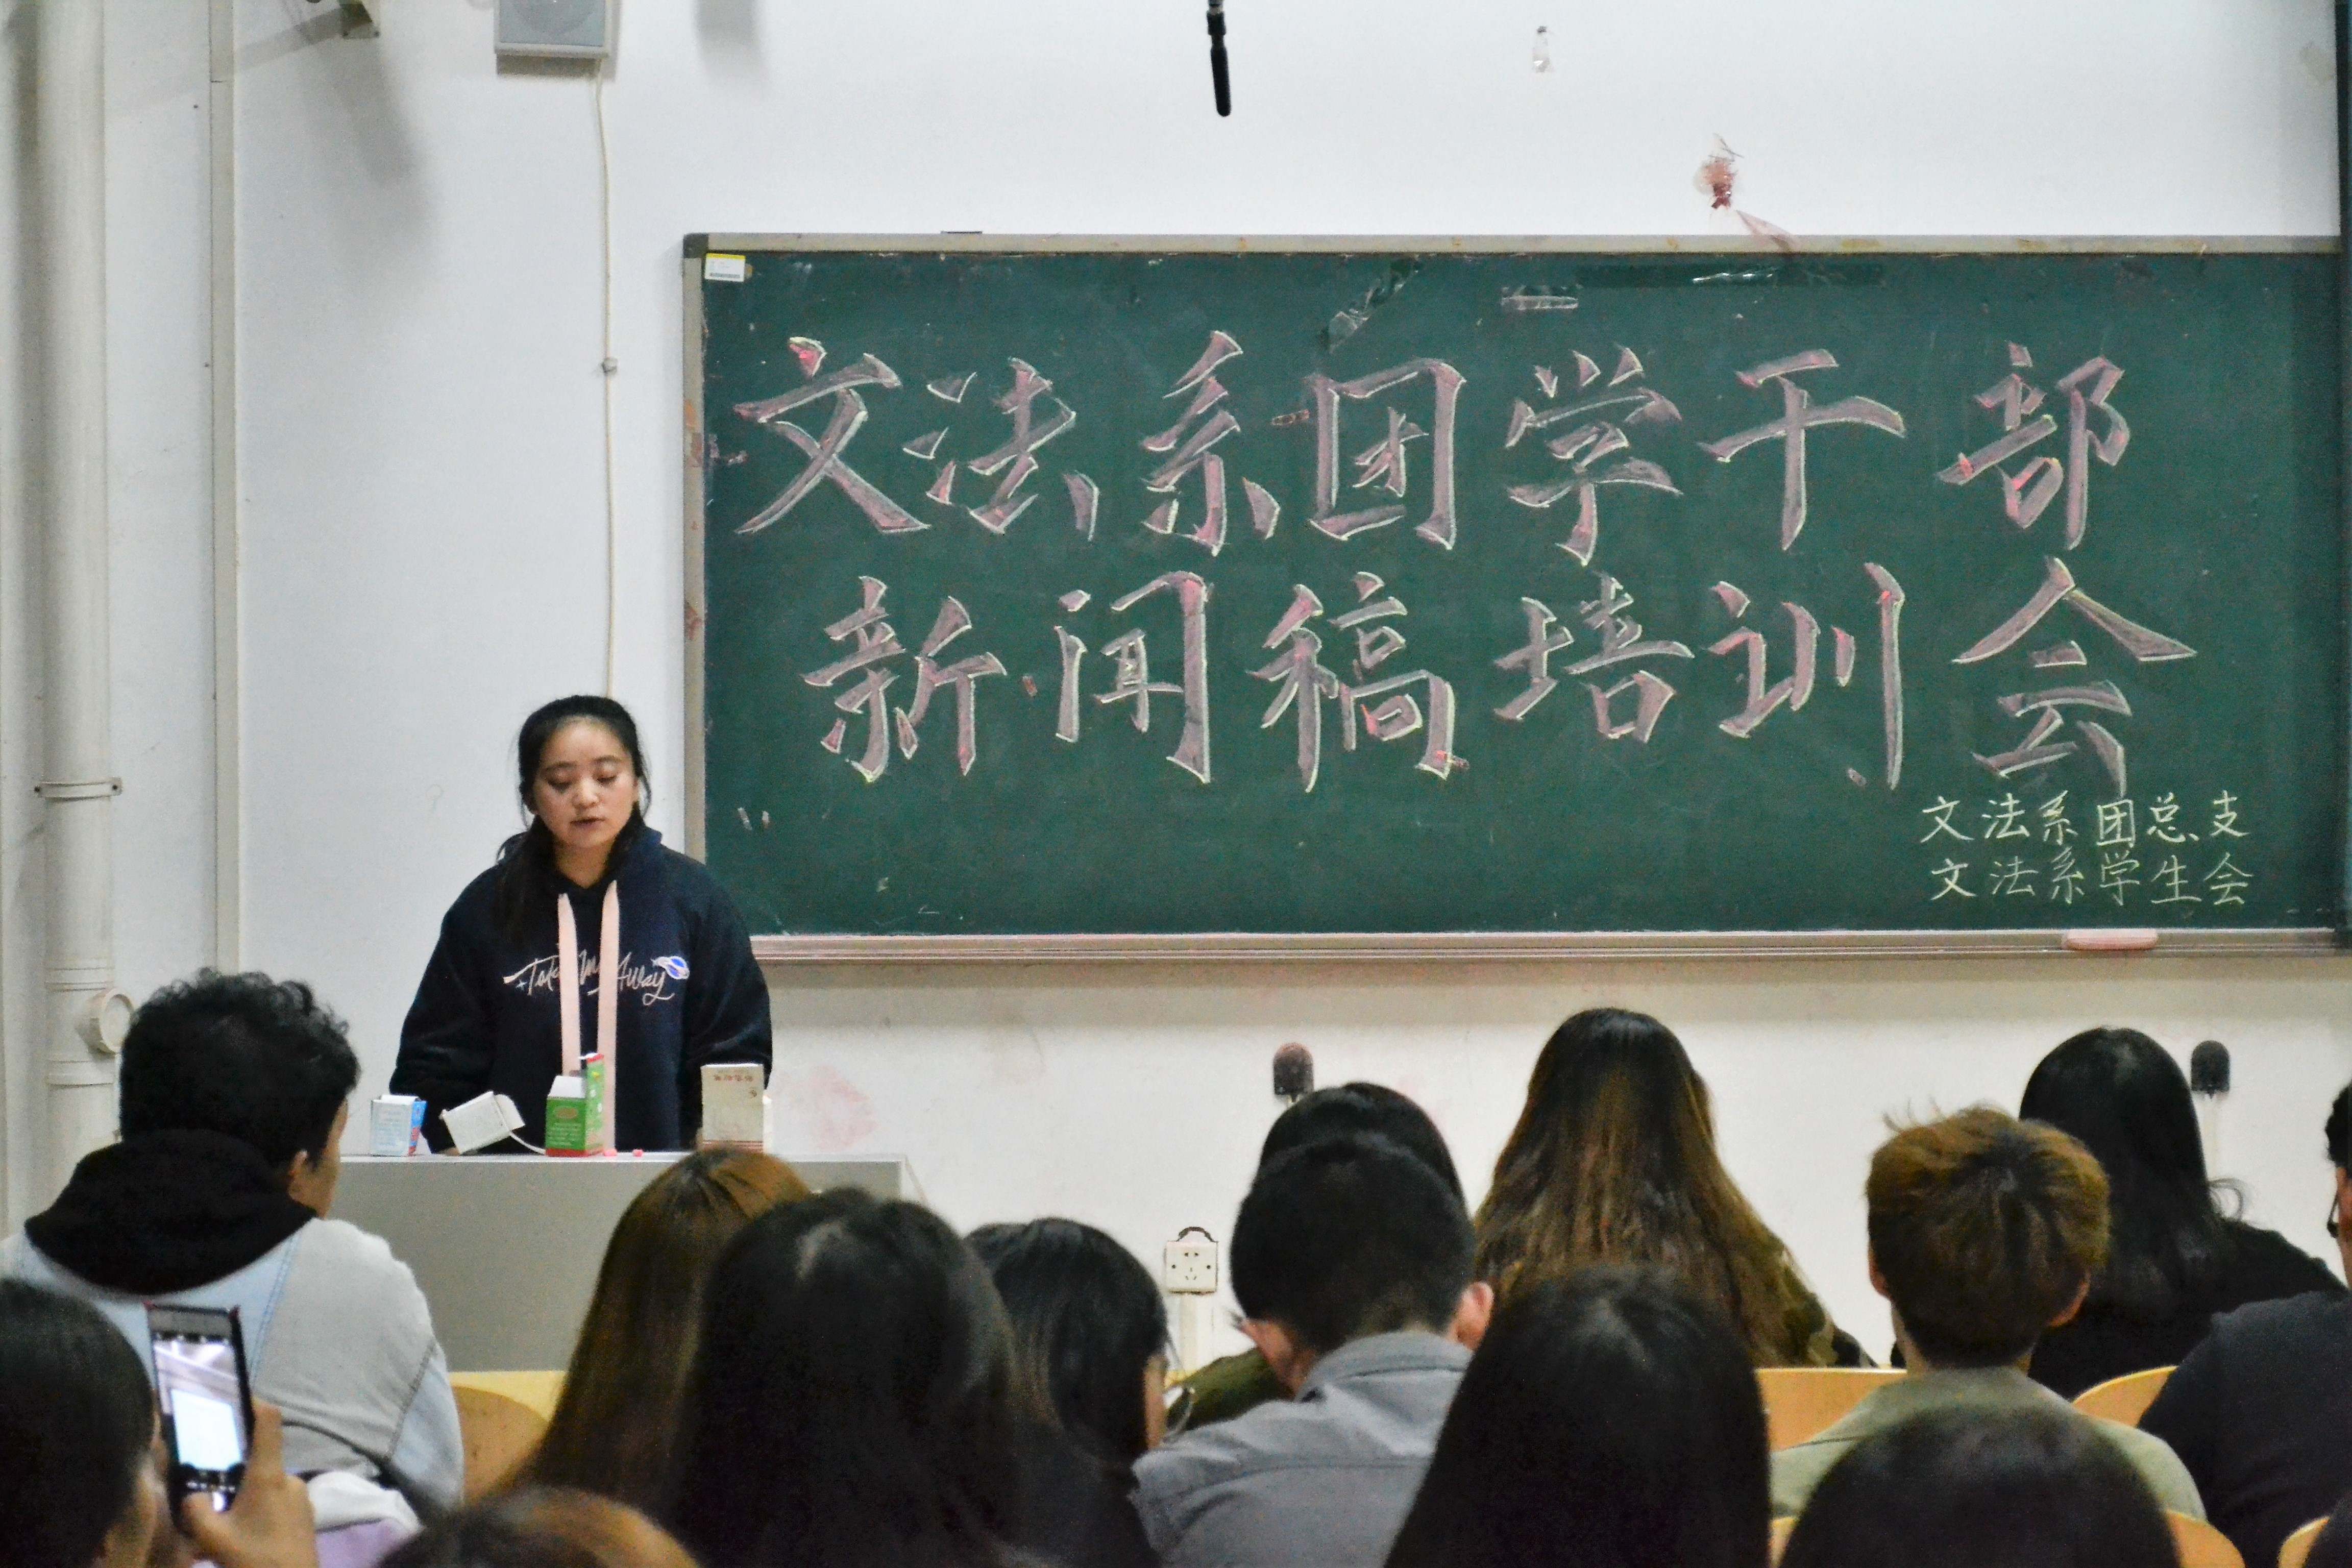 文法系团学干部
新闻稿培训会
文法系团总支
文法系学生会
Take Me Away